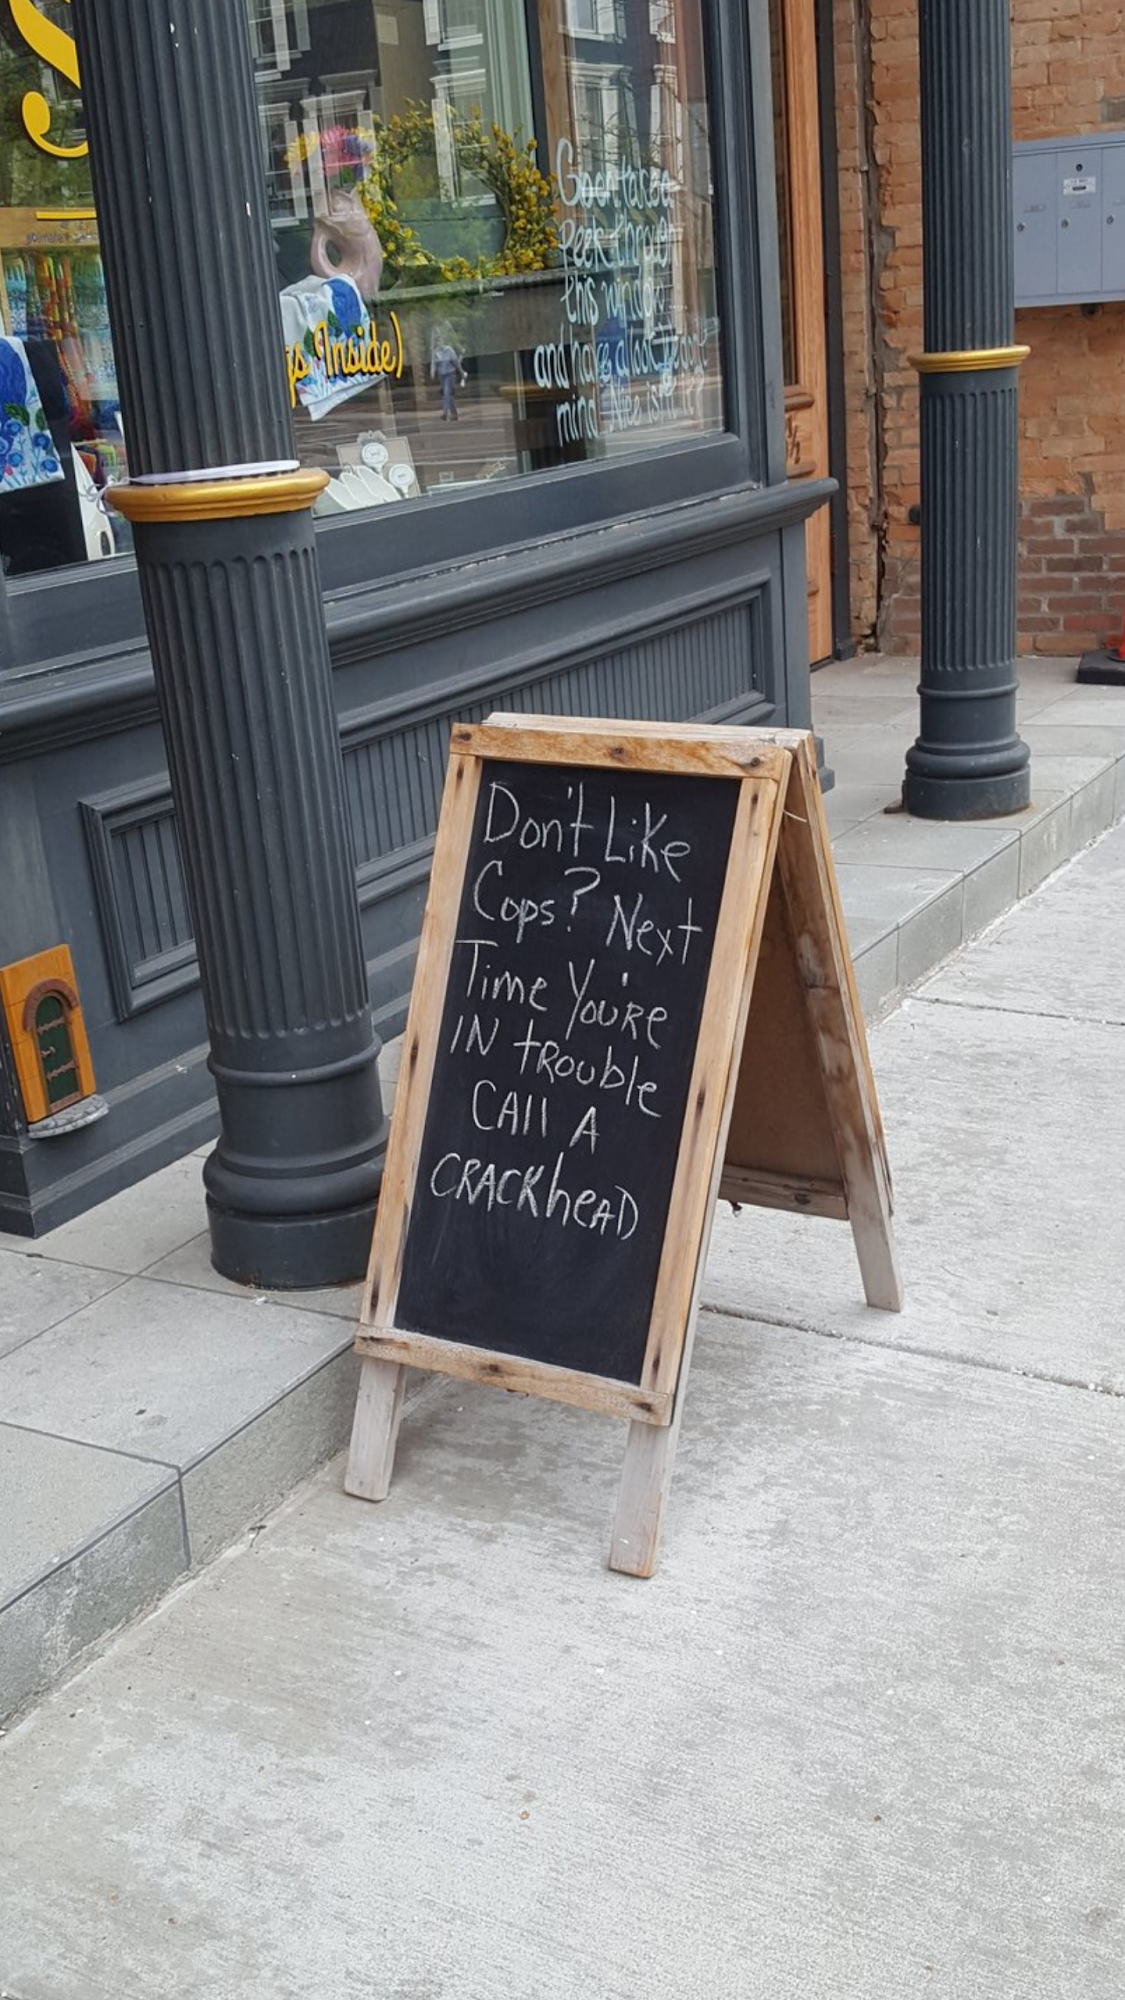 S
gs Inside)
Goon take a
peek through
this window
and have a look
mind. Nice isn't it?
Don't Like
Cops? Next
Time You're
IN tRouble
CAll A
CRACKheAD